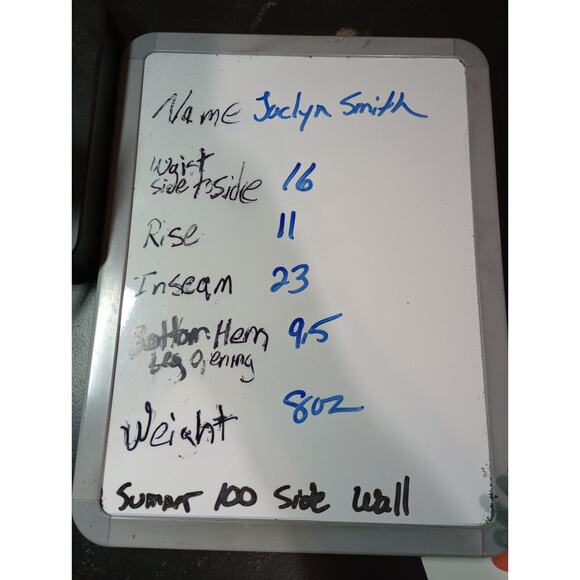 Name Jaclyn Smith
Waist
side to side 16
Rise 11
Inseam 23
Bottom Hem 9.5
Leg Opening
Weight 8oz
100 Side Wall